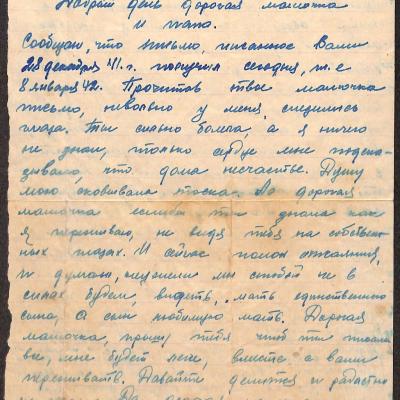 Добрый день дорогая мамочка
и папа.
Сообщаю, что письмо, писанное Вами
28 декабря 41 г. получил сегодня, т.е
8 января 42. Прочитав твое мамочка
письмо, невольно у меня слезились
глаза. Ты сильно болела, а я ничего
не знал, только сердце мне подска-
зывало, что дома несчастье. Душу
мою сковывала тоска. Да дорогая
мамочка если б ты знала как
я переживаю, не видя тебя на собствен-
ных глазах. И сейчас полон отчаяния,
и думаю, неужели мы с тобой не в
силах будем, видеть, мать единственного
сына, а сын любимую мать. Дорогая
мамочка, прошу тебя чтоб ты писала
все, мне будет легче, вместе с вами
переживать. Давайте делиться и радостью